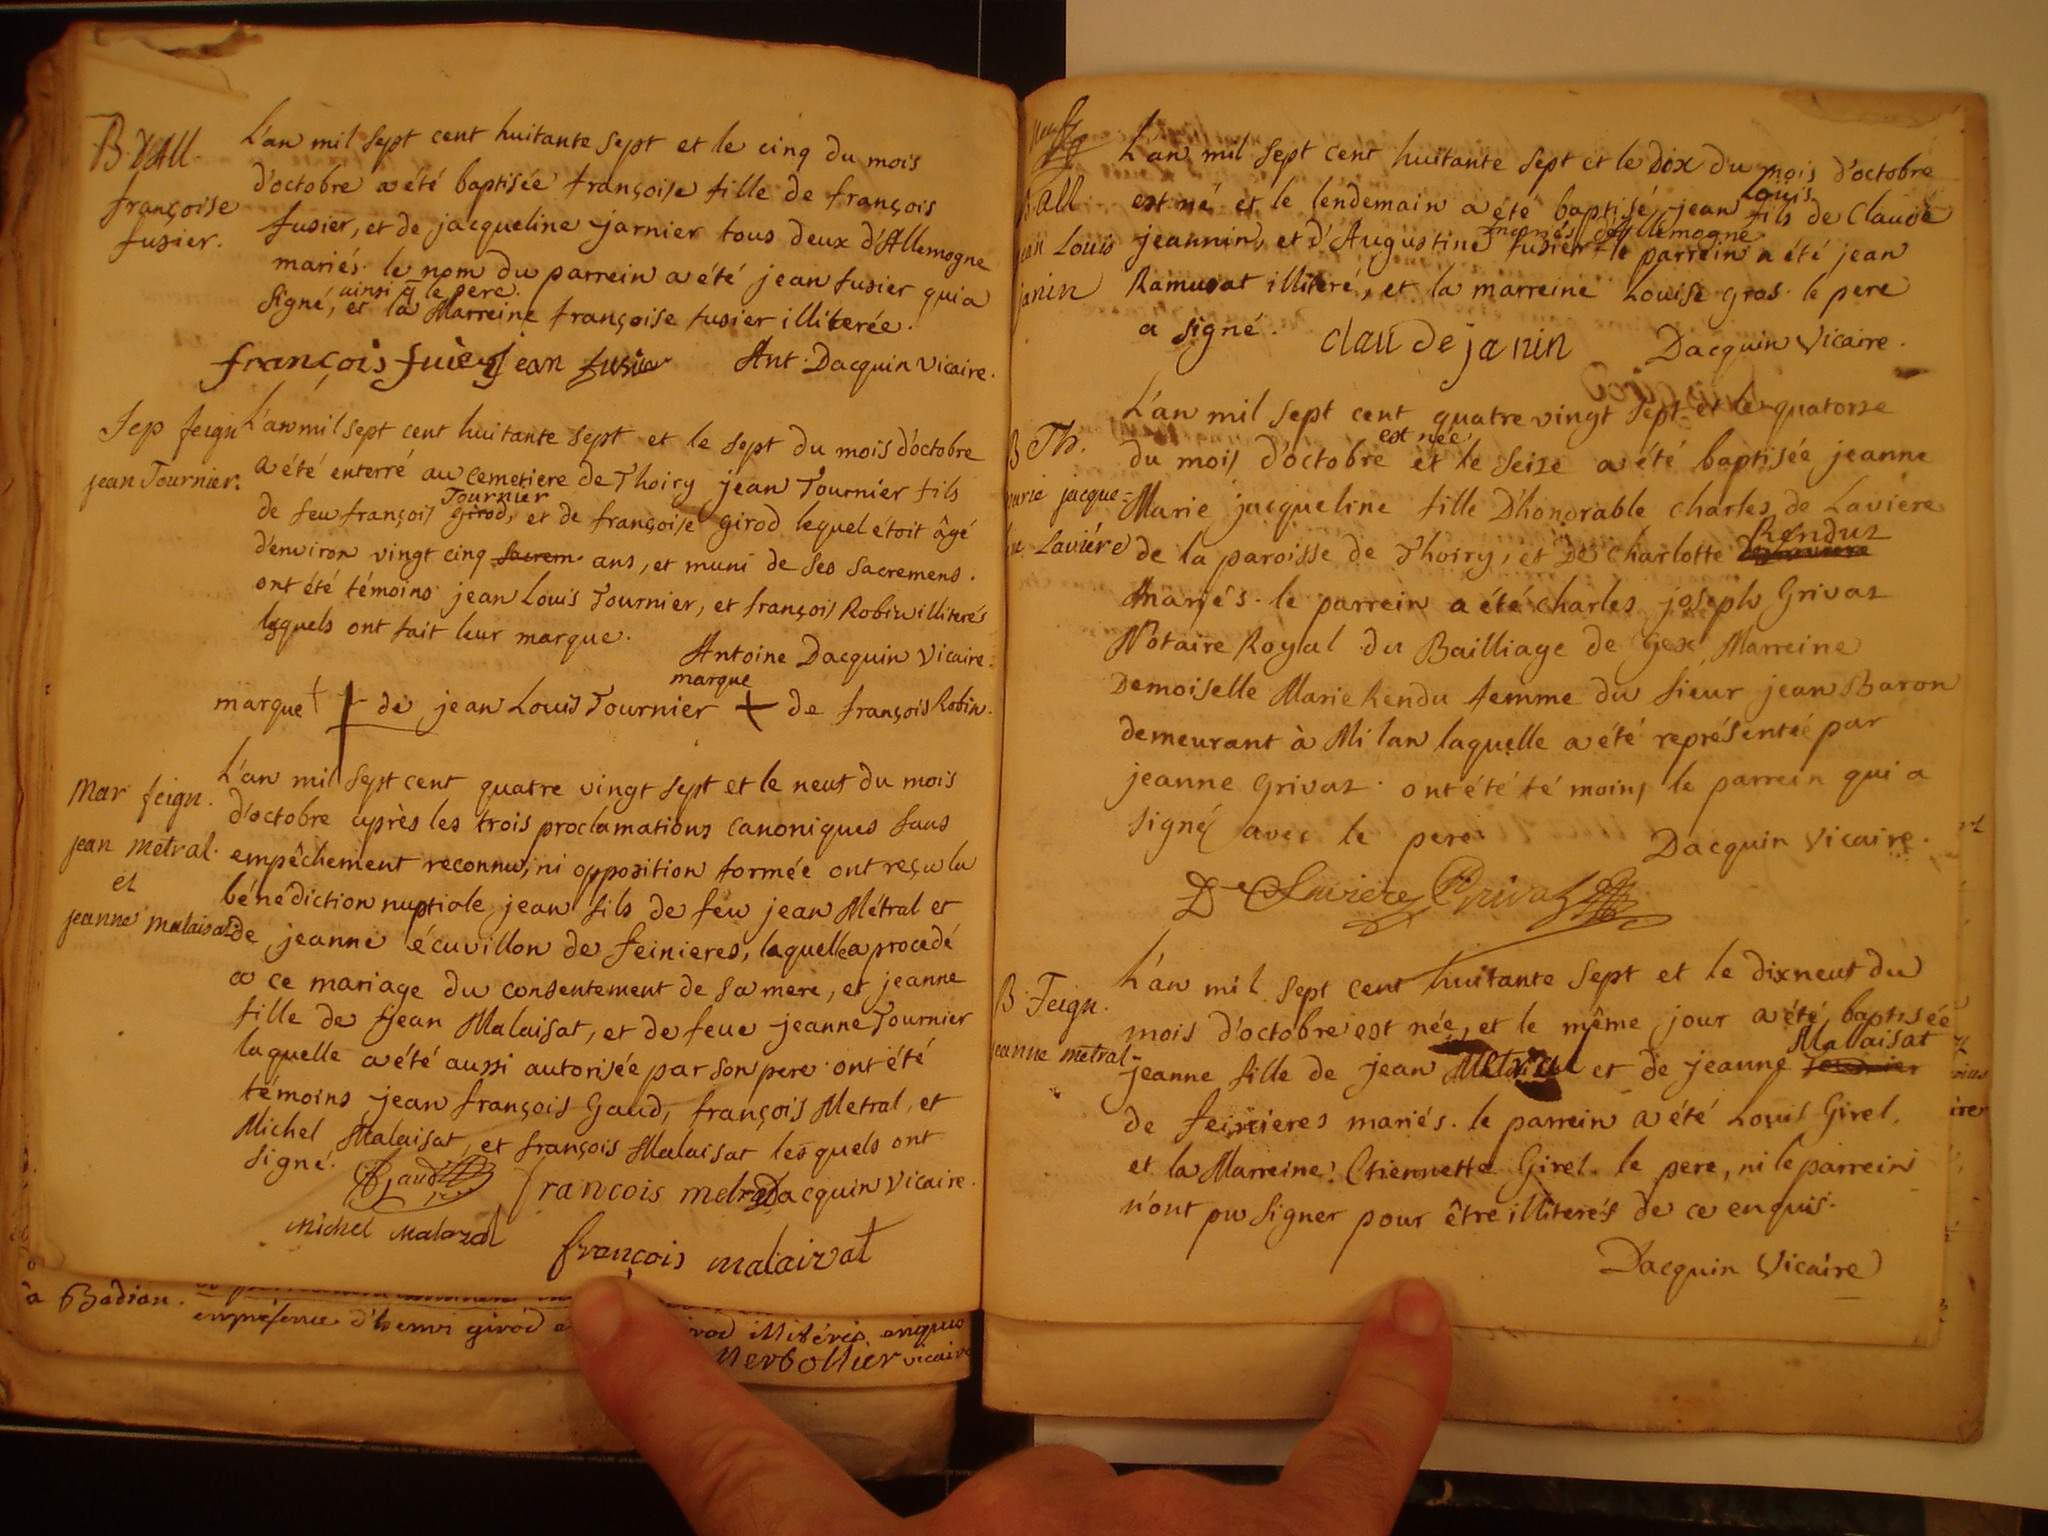 B. d'All.
françoise
fusier.
L'an mil sept cent huitante sept et le cinq du mois
d'octobre a été baptisée françoise fille de françois
fusier, et de jacqueline jarnier tous deux d'Allemogne
mariés. le nom du parrein a été jean fusier qui a
ainsi q̄ le pere.
signé, et la Marreine françoise fusier illiterée.
jean fusier Ant. Dacquin vicaire.
Sep feign
jean Tournier.
L'an mil sept cent huitante sept et le sept du mois d'octobre
a été enterré au cemetiere de Thoiry jean Tournier fils
Tournier
de feu françois Girod, et de françoise girod lequel étoit âgé
d'environ vingt cinq sacrem ans, et muni de ses sacremens.
ont été témoins jean Louis Tournier, et françois Robin illiterés
lesquels ont fait leur marque.
Antoine Dacquin vicaire.
marque
marque † de jean Louis Tournier + de françois Robin.
Mar feign.
jean métral.
et
jeanne malaisat
L'an mil sept cent quatre vingt sept et le neuf du mois
d'octobre après les trois proclamations canoniques sans
empêchement reconnu, ni opposition formée ont reçu la
bénédiction nuptiale jean fils de feu jean Métral et
de jeanne écuvillon de feinieres, laquelle a procedé
a ce mariage du consentement de sa mere, et jeanne
fille de jean Malaisat, et de feue jeanne Tournier
laquelle a été aussi autorisée par son pere. ont été
témoins jean françois Gaud, françois Metral, et
Michel Malaisat, et françois Malaisat lesquels ont
signé.
Gaud francois metral Dacquin vicaire.
Michel malazal
françois malaizat
à Badian.
en présence d'henri girod illitéris enquis
vicaire
neuf
B. All.
jean Louis
janin
L'an mil sept cent huitante sept et le dix du mois d'octobre
Louis
est né et le lendemain a été baptisé jean fils de Claude
mariés d'Allemogne
jeannin, et d'Augustine fusier. le parrein a été jean
Ramusat illiteré, et la marreine Louise Gros. le pere
a signé.
claude janin Dacquin vicaire.
B Th.
marie jacque-
line Laviére
L'an mil sept cent quatre vingt sept et le quatorze
est née
du mois d'octobre et le seize a été baptisée jeanne
Marie jacqueline fille D'honorable Charles de Laviere
Renduz
de la paroisse de Thoiry, et De Charlotte
mariés. le parrein a été Charles joseph Grivaz
Notaire Royal du Bailliage de Gex, Marreine
Demoiselle Marie Rendu femme du sieur jean Baron
demeurant à Milan laquelle a été représentée par
jeanne Grivaz. ont été témoins le parrein qui a
signé avec le pere.
Dacquin vicaire.
De Laviere Grivaz
B. Feign.
jeanne métral
L'an mil sept cent huitante sept et le dixneuf du
mois d'octobre est née, et le même jour a été baptisée
Malaisat
jeanne fille de jean Metral et de jeanne Tournier
de feinieres mariés. le parrein a été Louis Girel,
et la Marreine Etiennette Girel. le pere, ni le parrein
n'ont pu signer pour être illiterés de ce enquis.
Dacquin vicaire